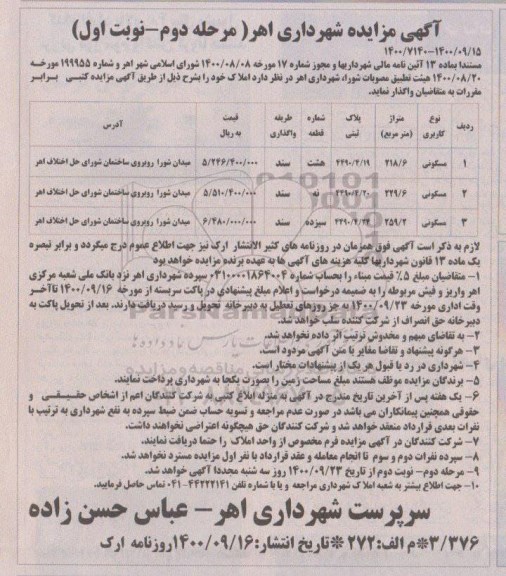 آگهی مزایده شهرداری اهر( مرحله دوم-نوبت اول)
۱۴۰۰/۷۱۴۰-۱۴۰۰/۰۹/۱۵
مستندا بماده ۱۳ آئین نامه مالی شهرداریها و مجوز شماره ۱۷ مورخه ۱۴۰۰/۰۸/۰۸ شورای اسلامی شهر اهر و شماره ۱۹۹۹۵۵ مورخه
۱۴۰۰/۰۸/۲۰ هیئت تطبیق مصوبات شورا، شهرداری اهر در نظر دارد املاک خود را بشرح ذیل از طریق آگهی مزایده کتبی برابر
مقررات به متقاضیان واگذار نماید.
ردیف نوع کاربری متراژ (متر مربع) پلاک ثبتی شماره قطعه طریقه واگذاری قیمت به ریال آدرس
۱ مسکونی ۲۱۸/۶ ۴۴۹۰/۴/۱۹ هشت سند ۵/۲۴۶/۴۰۰/۰۰۰ میدان شورا روبروی ساختمان شورای حل اختلاف اهر
۲ مسکونی ۲۲۹/۶ ۴۴۹۰/۴/۲۰ نه سند ۵/۵۱۰/۴۰۰/۰۰۰ میدان شورا روبروی ساختمان شورای حل اختلاف اهر
۳ مسکونی ۲۵۹/۲ سیزده سند ۶/۴۸۰/۰۰۰/۰۰۰ میدان شورا روبروی ساختمان شورای حل اختلاف اهر
لازم به ذکر است آگهی فوق همزمان در روزنامه های کثیر الانتشار ارک نیز جهت اطلاع عموم درج میگردد و برابر تبصره
یک ماده ۱۳ قانون شهرداریها کلیه هزینه های آگهی ها به عهده برنده مزایده خواهد بود
۱- متقاضیان مبلغ ۵٪ قیمت مبناء را بحساب شماره ۰۳۱۰۰۰۰۱۸۶۴۰۰۴ سپرده شهرداری اهر نزد بانک ملی شعبه مرکزی
اهر واریز و فیش مربوطه را به ضمیمه درخواست و اعلام مبلغ پیشنهادی در پاکت سربسته از مورخه ۱۴۰۰/۰۹/۱۶ تا آخر
وقت اداری مورخه ۱۴۰۰/۰۹/۲۳ به جز روزهای تعطیل به دبیرخانه تحویل و رسید دریافت دارند. بعد از تحویل پاکت به
دبیرخانه حق انصراف از شرکت کننده سلب خواهد شد.
۲- به تقاضای مبهم و مخدوش ترتیب اثر داده نخواهد شد.
۳- هرگونه پیشنهاد و تقاضا مغایر با متن آگهی مردود است.
۴- شهرداری در رد یا قبول هر یک از پیشنهادات مختار است.
۵- برندگان مزایده موظف هستند مبلغ مساحت زمین را بصورت یکجا به شهرداری پرداخت نمایند.
۶- یک هفته پس از آخرین تاریخ مندرج در آگهی به منزله ابلاغ کتبی به شرکت کنندگان اعم از اشخاص حقیقی و
حقوقی همچنین پیمانکاران می باشد در صورت عدم مراجعه و تسویه حساب ضمن ضبط سپرده به نفع شهرداری به ترتیب با
نفرات بعدی قرارداد منعقد خواهد شد و شرکت کنندگان حق هیچگونه اعتراضی نخواهند داشت.
۷- شرکت کنندگان در آگهی مزایده فرم مخصوص از واحد املاک را حتما دریافت نمایند.
۸- سپرده نفرات دوم و سوم تا انجام معامله و عقد قرارداد با نفر اول مزایده مسترد نخواهد شد.
۹- مرحله دوم- نوبت دوم از تاریخ ۱۴۰۰/۰۹/۲۳ روز سه شنبه مجددا آگهی خواهد شد.
۱۰- جهت اطلاع بیشتر به شعبه املاک شهرداری مراجعه و یا با شماره تلفن ۴۴۲۲۲۱۴۱-۰۴۱ تماس حاصل فرمایید.
سرپرست شهرداری اهر- عباس حسن زاده
۳/۳۷۶*م الف:۲۷۲*تاریخ انتشار:۱۴۰۰/۰۹/۱۶روزنامه ارک